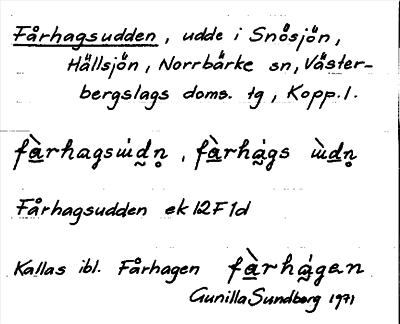 Fårhagsudden, udde i Snösjön,
Hällsjön, Norrbärke sn, Väster-
bergslags doms. tg, Kopp.l.
fàrhagsẁdn̥, fàrhágs ẁdn̥
Fårhagsudden ek 12F1d
Kallas ibl. Fårhagen fàrhágen
Gunilla Sundberg 1971